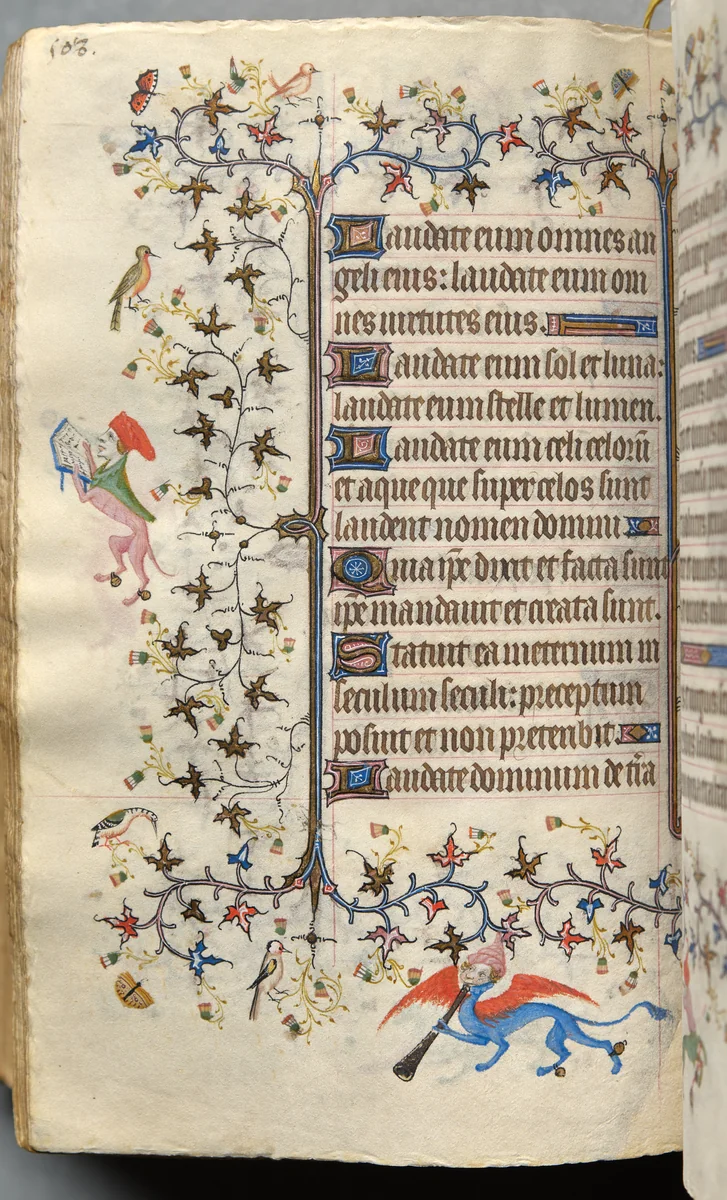 508.
Laudate eum omnes an
geli eius: laudate eum om
nes uirtutes eius.
Laudate eum sol et luna:
laudate eum stelle et lumen.
Laudate eum celi celorū
et aque que super celos sunt
laudent nomen domini
Quia ip̄e dixit et facta sunt
ip̄e mandauit et creata sunt.
Statuit ea in eternum in
seculum seculi: preceptum
posuit et non preteribit.
Laudate dominum de t̄ra